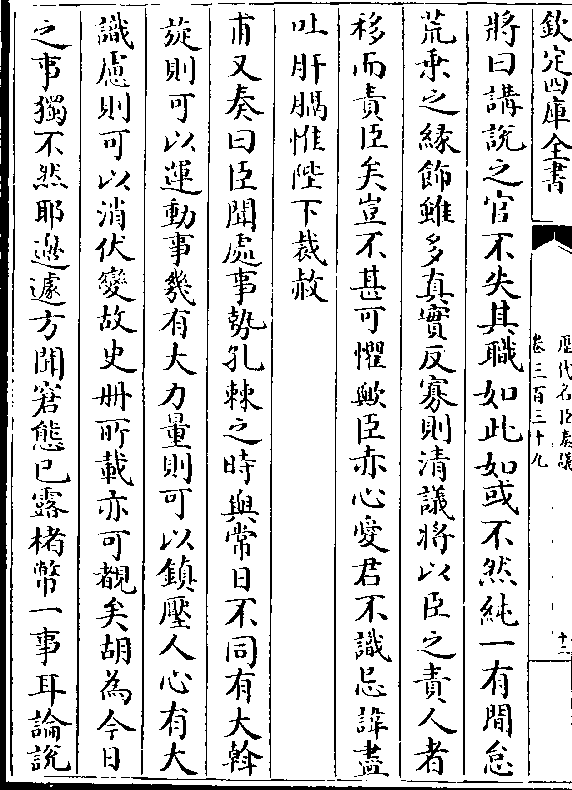 欽定四庫全書
歷代名臣奏議
卷三百三十九
十二
將曰講說之官不失其職如此如或不然純一有間怠
荒乗之縁飾雖多真實反寡則清議將以臣之責人者
移而責臣矣豈不甚可懼歟臣赤心愛君不識忌諱盡
吐肝膈惟陛下裁赦
甫又奏曰臣聞處事勢孔棘之時與常日不同有大斡
旋則可以運動事幾有大力量則可以鎮壓人心有大
識慮則可以消伏變故史冊所載亦可覩矣胡為今日
之事獨不然耶邊遽方聞窘態已露楮幣一事耳論說